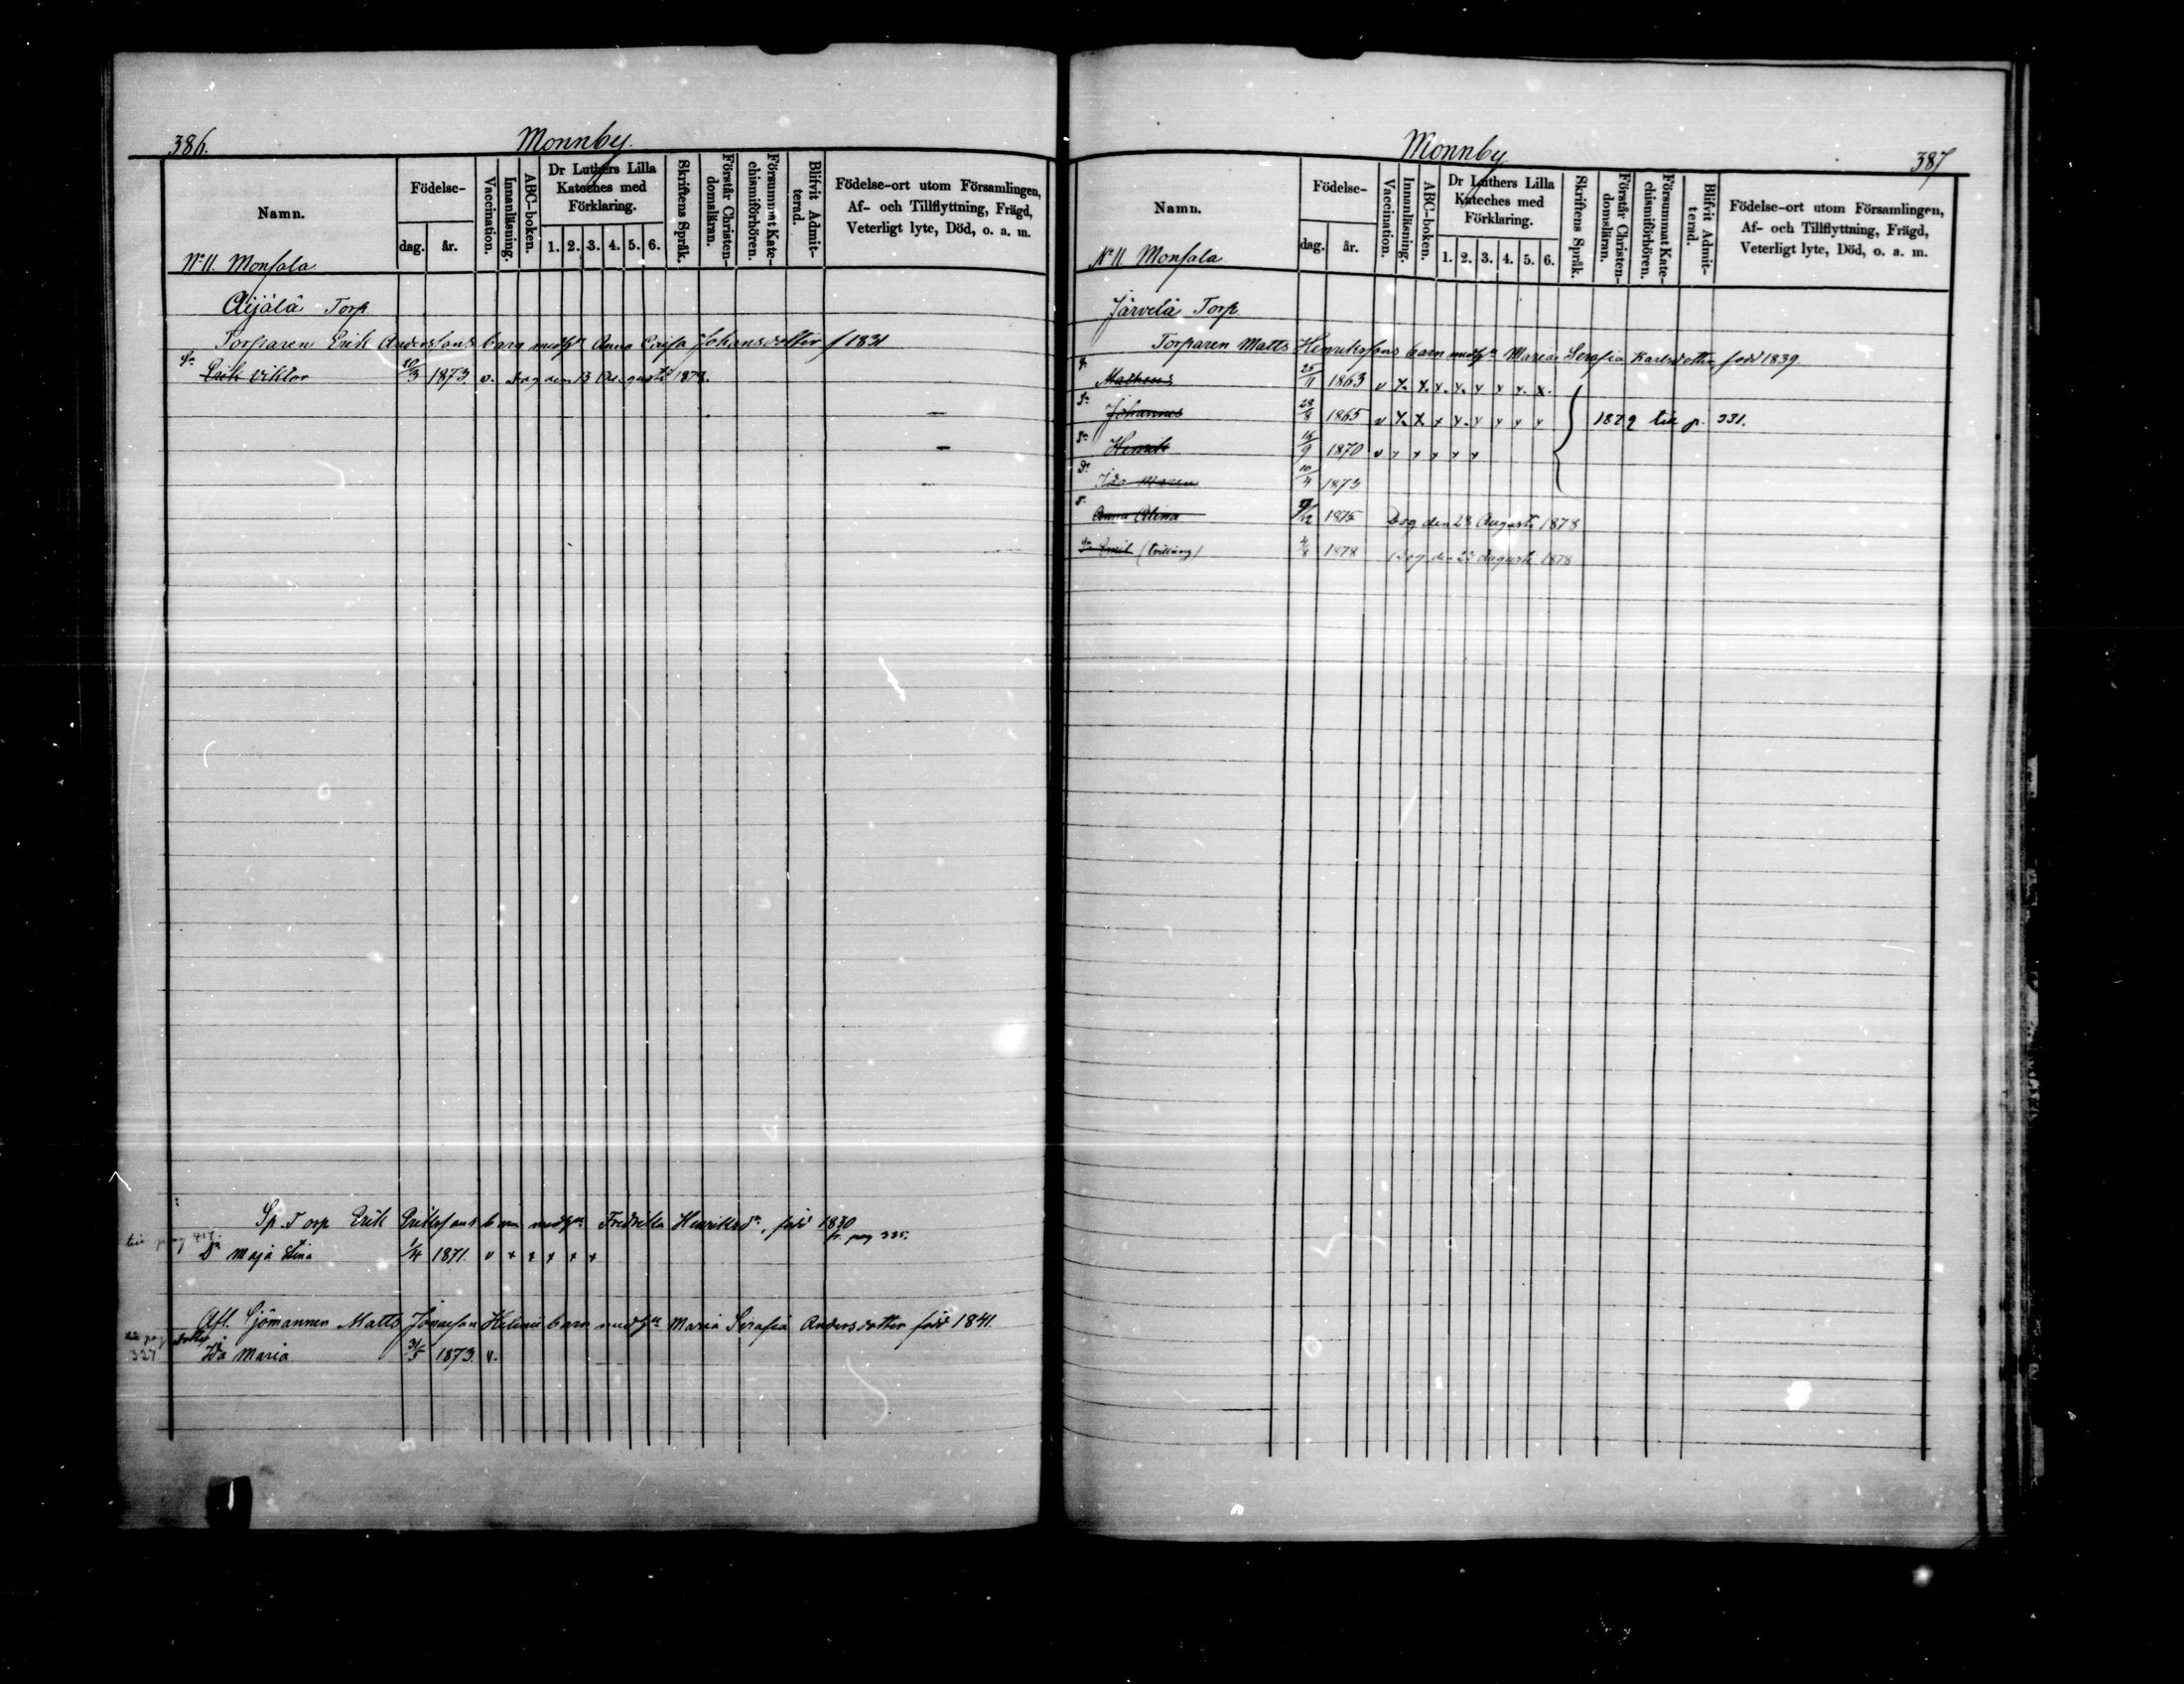 386.
Monnby.
Namn.
Födelse-
dag. år.
Vaccination.
Innanläsning.
ABC-boken.
Dr Luthers Lilla
Kateches med
Förklaring.
1. 2. 3. 4. 5. 6.
Skriftens Språk.
Förstår Christen-
domsläran.
Försummat Kate-
chismiförhören.
Blifvit Admit-
terad.
Födelse-ort utom Församlingen,
Af- och Tillflyttning, Frägd,
Veterligt lyte, Död, o. a. m.
No 11. Monsala
Äijälä Torp
Torparen Erik Anderssons barn med hu Anna Cajsa Johansdotter f 1831
Sn Erik Viktor 20/3 1873. v. Dog den 13 Augusti 1878.
Sp. Torp Erik Erikssons barn med hu Fredrika Henriksdr, född 1830
fr. pag 335.
till pag 417.
Dr Maja Lina 1/4 1871. v x x x x x
Afl. Sjömannen Matts Jonasson barn med hu Maria Serafia Andersdotter född 1841.
till pag
337 dotter
Ida Maria 31/5 1873. v.
Monnby
387
Namn.
Födelse-
dag. år.
Vaccination.
Innanläsning.
ABC-boken.
Dr Luthers Lilla
Kateches med
Förklaring.
1. 2. 3. 4. 5. 6.
Skriftens Språk.
Förstår Christen-
domsläran.
Försummat Kate-
chismiförhören.
Blifvit Admit-
terad.
Födelse-ort utom Församlingen,
Af- och Tillflyttning, Frägd,
Veterligt lyte, Död, o. a. m.
No 11. Monsala
Järvelä Torp.
Torparen Matts Henrikssons barn med hu Maria Serafia Karlsdotter, född 1839.
S. Matheus 25/11 1863 v x. x. x. x. x x x. x.
Sn Johannes 28/8 1865 v x. x x x. x x x x 1879 till p. 331.
Sn Henrik 16/9 1870 v x x x x x
Dr Ida Maria 10/4 1873
Anna Alina 1875 Dog den 28 Augusti 1878
Sn Emil (tvilling) 4/8 1878 Dog den 23 Augusti 1878